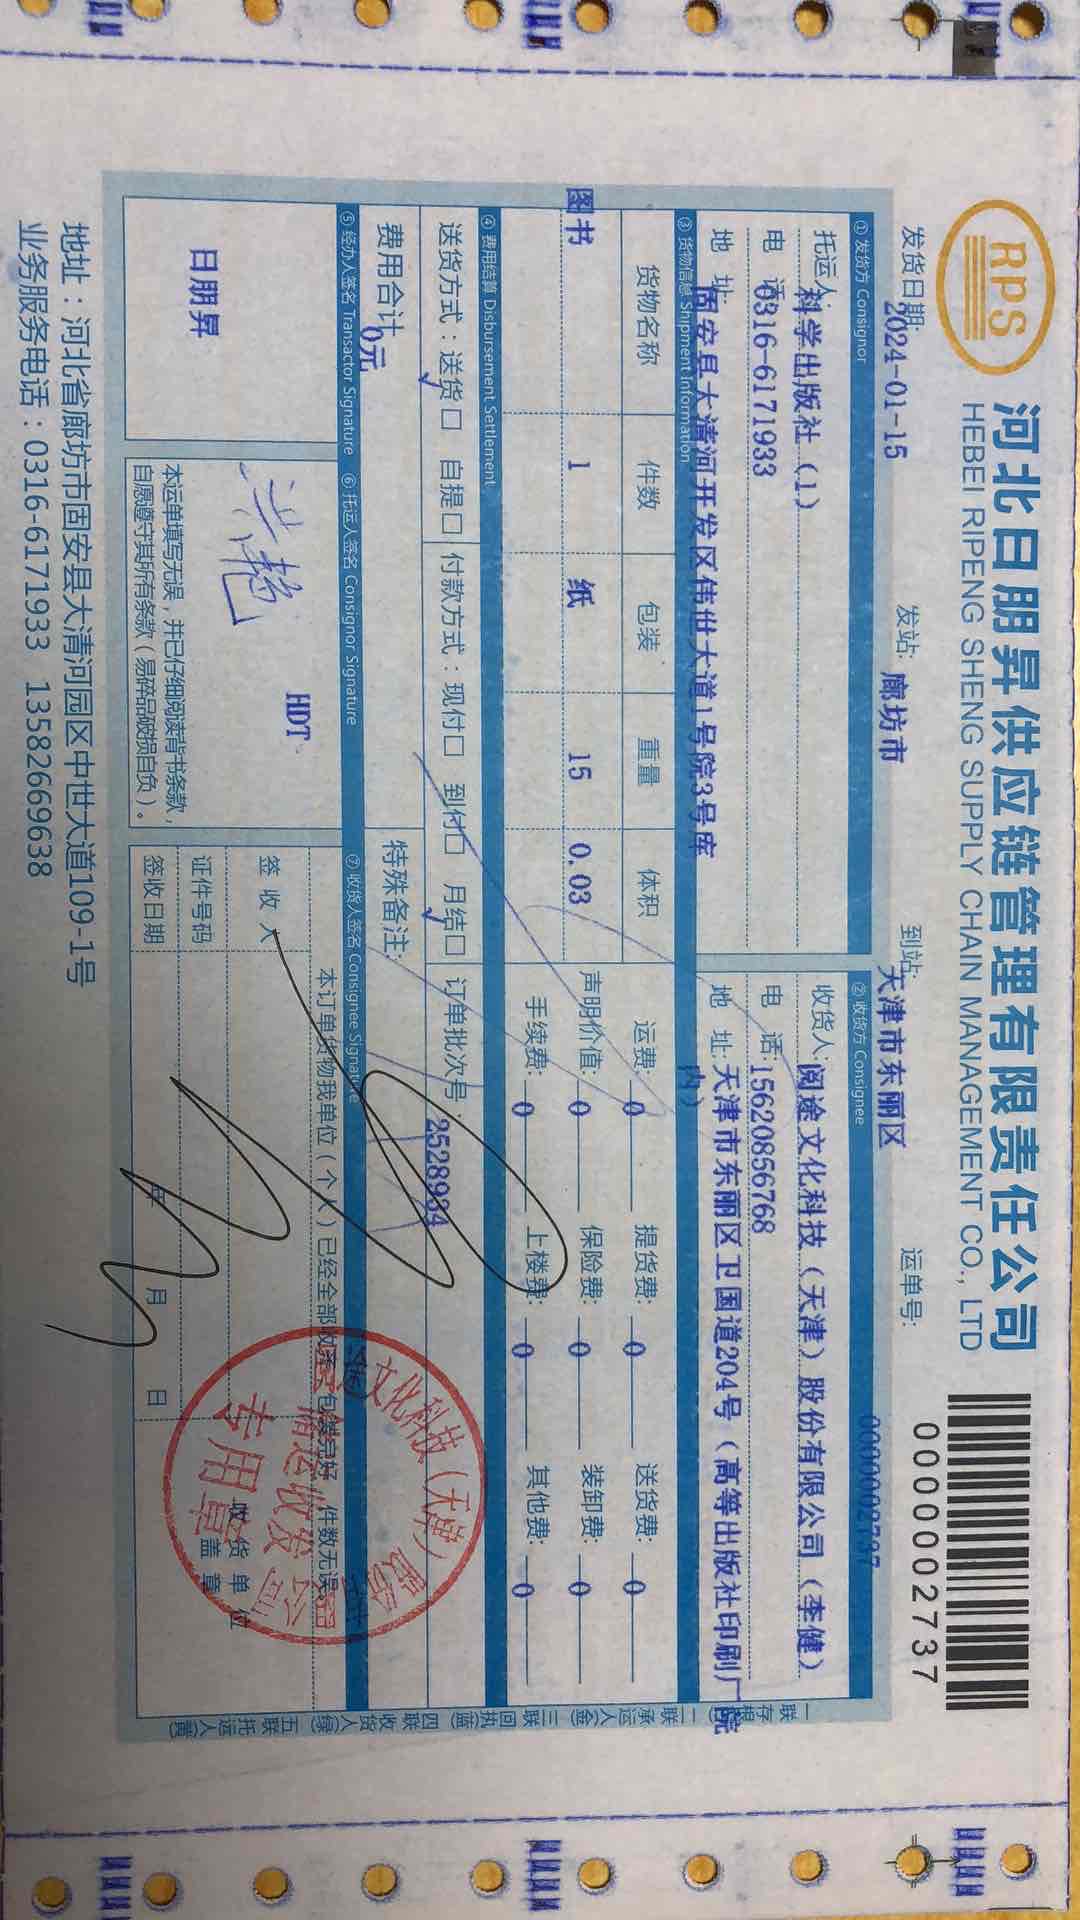 RPS
河北日朋昇供应链管理有限责任公司
HEBEI RIPENG SHENG SUPPLY CHAIN MANAGEMENT CO., LTD
0000002737
发货日期: 2024-01-15 发站: 廊坊市 到站: 天津市东丽区 运单号: 0000002737
① 发货方 Consignor
托运人: 科学出版社（1）
电 话: 0316-6171933
地 址: 固安县大清河开发区伟世大道1号院3号库
② 收货方 Consignee
收货人: 阅途文化科技（天津）股份有限公司（李健）
电 话: 15620856768
地 址: 天津市东丽区卫国道204号（高等出版社印刷厂院
内）
③ 货物信息 Shipment Information
货物名称 件数 包装 重量 体积
图书 1 纸 15 0.03
运费: 0 提货费: 0 送货费: 0
声明价值: 0 保险费: 0 装卸费: 0
手续费: 0 上楼费: 0 其他费: 0
④ 费用结算 Disbursement Settlement
送货方式：送货□ ✓ 自提□ 付款方式：现付□ 到付□ 月结□ ✓ 订单批次号: 2528984
费用合计: 0元
特殊备注:
⑤ 经办人签名 Transactor Signature
日朋昇
⑥ 托运人签名 Consignor Signature
HDT
本运单填写无误，并已仔细阅读背书条款，
自愿遵守其所有条款（易碎品破损自负）。
⑦ 收货人签名 Consignee Signature
本订单货物我单位（个人）已经全部收到，包装完好，件数无误。
签 收 人
证件号码
签收日期 年 月 日
收货单位
盖 章
文化科技（天津）股
储运收发
专用章
一联存根 二联承运人(金) 三联回执(蓝) 四联收货人(绿) 五联托运人(黄)
地址：河北省廊坊市固安县大清河园区中世大道109-1号
业务服务电话：0316-6171933 13582669638